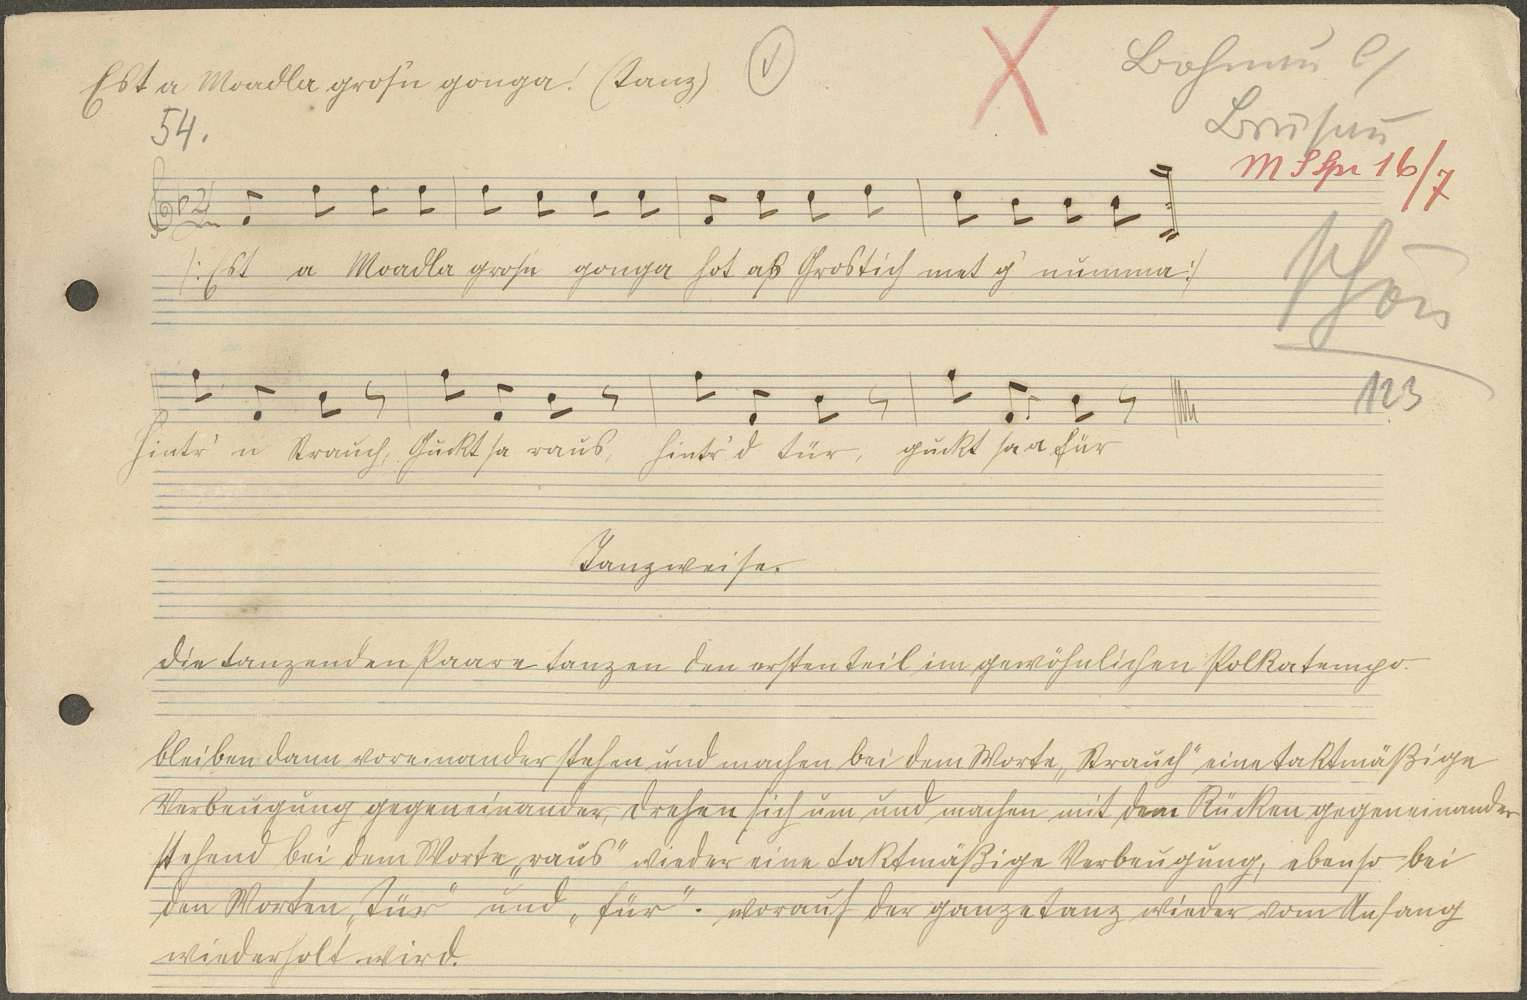 Est a Moadla grosn gonga! (Tanz)
54.
M S Spr 16/7
/: Est a Moadla grosn gonga hot aß Grostich met g' numma :/
schön
123
Hintr' n Strauch, Guckt sa raus, hintr' d Tür, guckt sa a für
Tanzweise.
Die tanzenden Paare tanzen den ersten Teil im gewöhnlichen Polkatempo.
bleiben dann voreinander stehen und machen bei dem Worte „Strauch" eine taktmäßige
Verbeugung gegeneinander, drehen sich um und machen mit dem Rücken gegeneinander
stehend bei dem Worte „raus" wieder eine taktmäßige Verbeugung, ebenso bei
den Worten „Tür" und „für". worauf der ganze Tanz wieder vom Anfang
wiederholt wird.